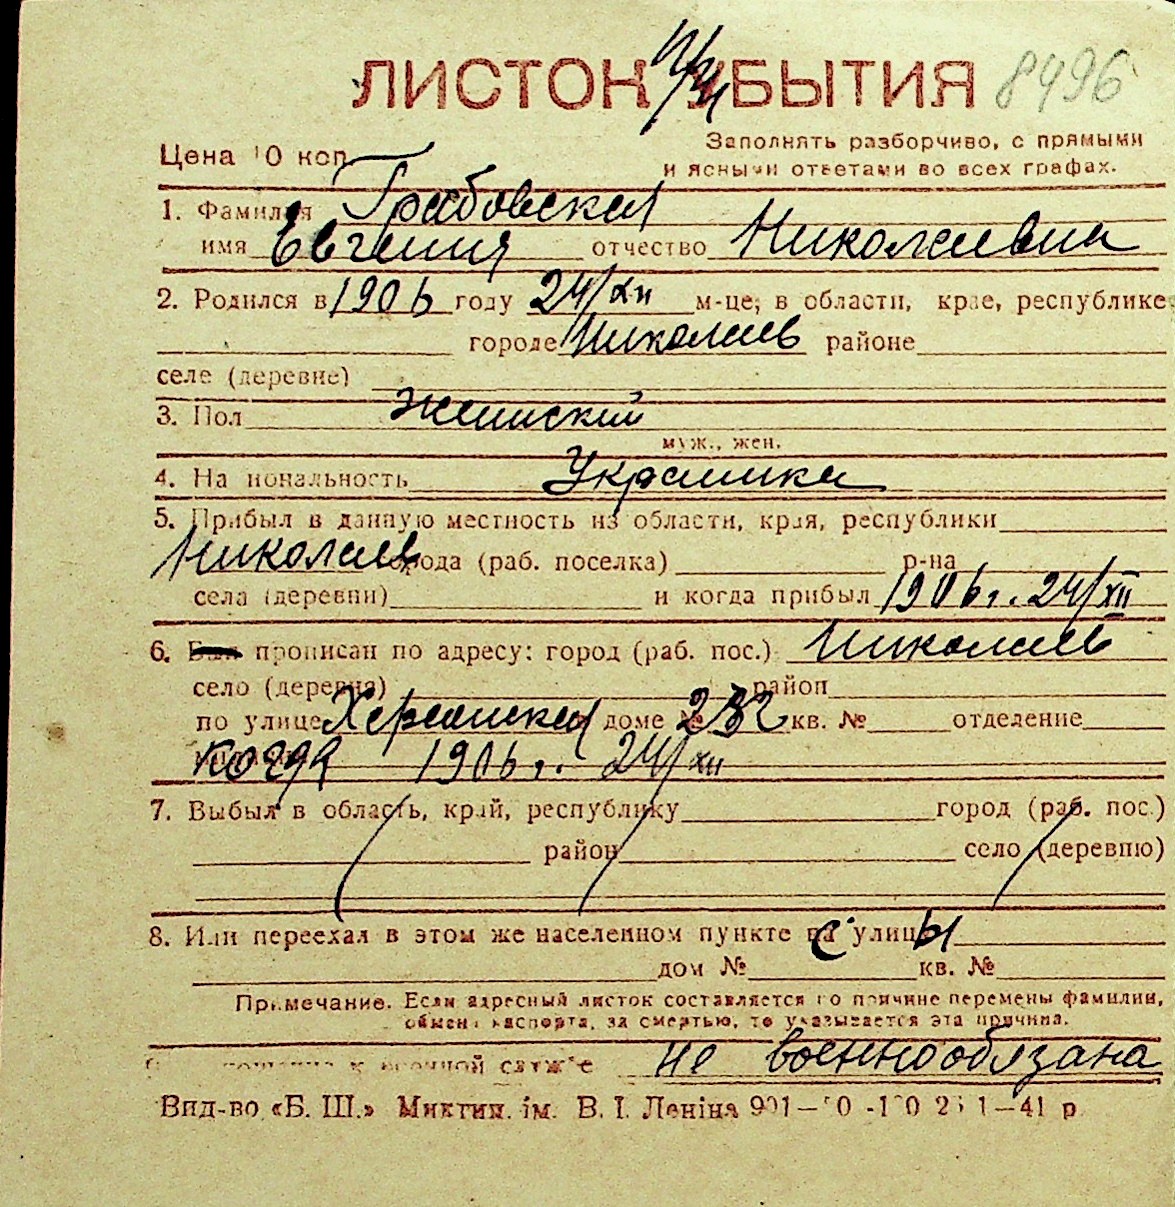 ЛИСТОК УБЫТИЯ 8496
Цена 10 коп.
Заполнять разборчиво, с прямыми
и ясными ответами во всех графах.
1. Фамилия Грабовская
имя Евгения отчество Николаевна
2. Родился в 1906 году 24/XII м-це, в области, крае, республике
городе Николаев районе
селе (деревне)
3. Пол женский
муж., жен.
4. Национальность Украинка
5. Прибыл в данную местность из области, края, республики
Николаев города (раб. поселка) р-на
села (деревни) и когда прибыл 1906 г. 24/XII
6. Был прописан по адресу: город (раб. пос.) Николаев
село (деревня) район
по улице Херсонская доме № кв. № отделение
когда 1906 г. 24/XII
7. Выбыл в область, край, республику город (раб. пос.)
район село (деревню)
8. Или переехал в этом же населенном пункте с улицы
дом № кв. №
Примечание. Если адресный листок составляется по причине перемены фамилии,
обмена паспорта, за смертью, то указывается эта причина.
к военной службе не военнообязана
Вид-во «Б. Ш.» Миктип. ім. В. І. Леніна